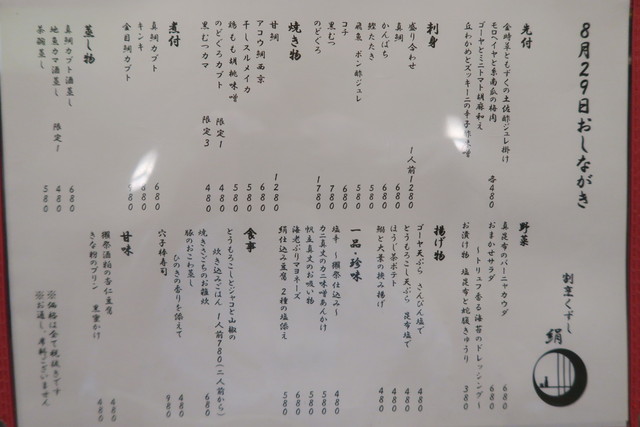 8月29日おしながき
割烹くずし
絹
先付
金時草ともずくの土佐酢ジュレ掛け
モロヘイヤと東南瓜の梅肉
ゴーヤとミニトマト胡麻和え
丘わかめとズッキーニの辛子酢味噌
各480
刺身
盛り合わせ 1人前1280
真鯛 680
かんぱち 580
鰹たたき 580
飛魚 ポン酢ジュレ 580
コチ 680
黒むつ 780
のどぐろ 1780
焼き物
甘鯛 1280
アコウ鯛西京 680
干しスルメイカ 580
鶏もも胡桃味噌 580
のどぐろカブト 限定1 480
黒むつカマ 限定3 480
煮付
真鯛カブト 680
キンキ
金目鯛カブト 980
蒸し物
真鯛カブト酒蒸し 680
地魚カマ酒蒸し 限定1 480
茶碗蒸し 580
野菜
真昆布のバーニャカウダ 680
おまかせサラダ 680
～トリュフ香る海苔のドレッシング～
お漬け物 塩昆布と蛇腹きゅうり 380
揚げ物
ゴーヤ天ぷら さんぴん塩で 480
とうもろこし天ぷら 昆布塩で 480
ほうじ茶ポテト 480
鯛と大葉の挟み揚げ 480
一品・珍味
塩辛～獺祭仕込み～ 480
カニ真丈のカニ味噌あんかけ 580
帆立真丈のお吸い物 680
海老ぷりマヨネーズ 580
絹仕込み豆腐 2種の塩添え 580
食事
とうもろこしとジャコと山椒の
炊き込みごはん 1人前780(二人前から)
焼きさごちのお雑炊 680
豚のおこわ蒸し 480
ひのきの香りを添えて
穴子棒寿司 980
甘味
獺祭酒粕の杏仁豆腐 480
きな粉のプリン 黒蜜かけ 480
※価格は全て税抜きです
※お通し、席料ございません